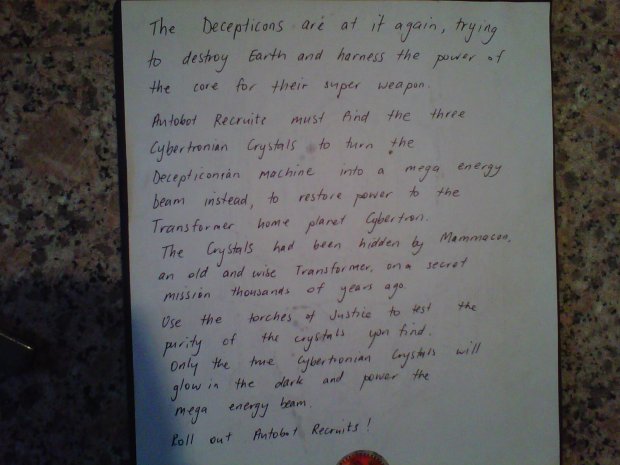 The Decepticons are at it again, trying
to destroy Earth and harness the power of
the core for their super weapon.
Autobot Recruits must find the three
Cybertronian Crystals to turn the
Decepticonian machine into a mega energy
beam instead, to restore power to the
Transformer home planet Cybertron.
The Crystals had been hidden by Mammacon,
an old and wise Transformer, on a secret
mission thousands of years ago.
Use the torches of Justice to test the
purity of the crystals you find.
Only the true Cybertronian Crystals will
glow in the dark and power the
mega energy beam.
Roll out Autobot Recruits!